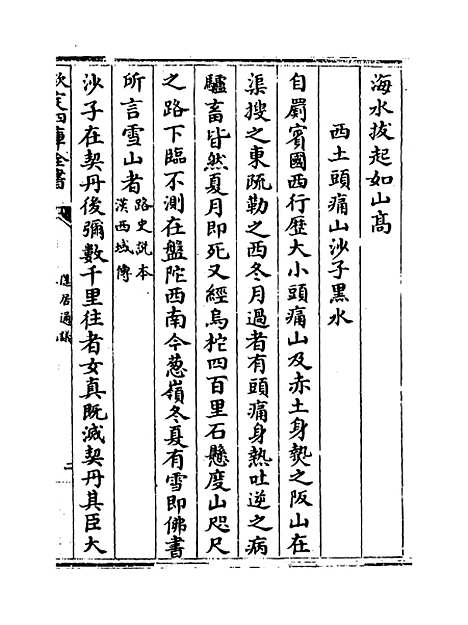 海水拔起如山髙
西土頭痛山沙子黒水
自罽賓國西行歴大小頭痛山及赤土身熱之阪山在
渠搜之東疏勒之西冬月過者有頭痛身熱吐逆之病
驢畜皆然夏月即死又經烏柁四百里石懸度山咫尺
之路下臨不測在盤陀西南今葱嶺冬夏有雪即佛書
所言雪山者路史説本
漢西域傳
沙子在契丹後彌數千里往者女真既滅契丹其臣大
欽定四庫全書
隱居通議
二